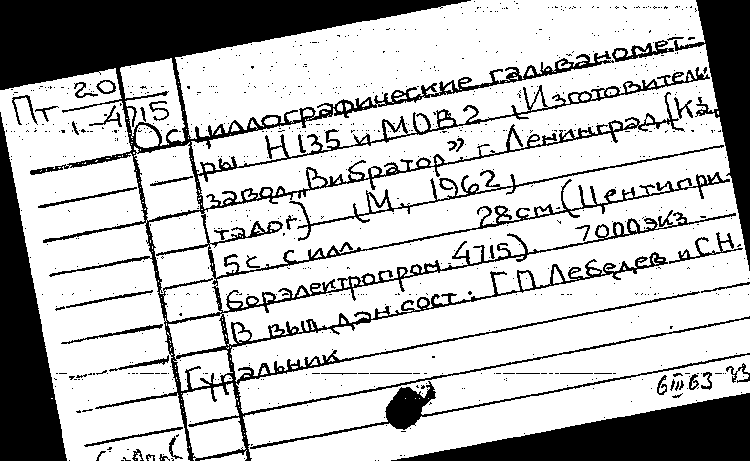 Пт 20
1-4715
Осциллографические гальваномет-
ры Н135 и МОВ2 [Изготовитель
завод "Вибратор" г. Ленинград [Ка
талог] [М., 1962]
5с. с илл. 28см (Центипри-
борэлектропром. 4715). 7000экз.
В вып. дан. сост.: Г.П. Лебедев и С.Н.
Гуральник
6 III 63